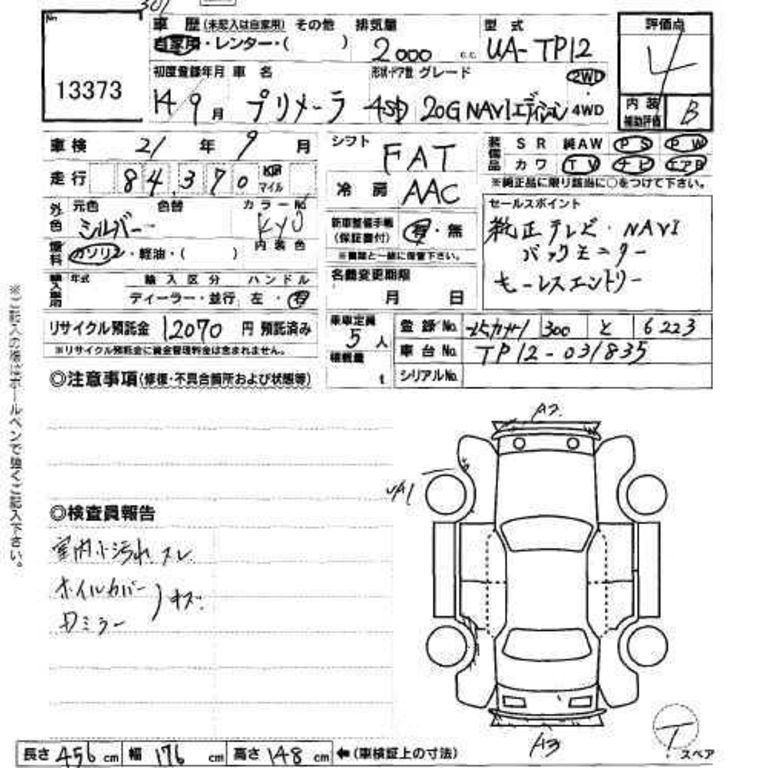 No
13373
車歴(未記入は自家用) その他 排気量 型式 評価点
自家用・レンター・( ) 2000 c.c. UA-TP12 4
初度登録年月 車名 形状・ドア数 グレード 2WD
14 9月 プリメーラ 4SD 20G NAVIエディション 4WD 内装補助評価 B
車検 21年9月 シフト FAT 装備品 SR 純AW PS PW
走行 84,370 Km マイル 冷房 AAC カワ TV ナビ エアB
※純正品に限り該当に○をつけて下さい。
外色 元色 色替 カラーNo
シルバー KY0
内装色
新車整備手帳(保証書付) 有・無
※書類と一緒に保管下さい。
セールスポイント
純正テレビ・NAVI
バックモニター
キーレスエントリー
燃料 ガソリン・軽油・( )
年式 輸入区分 ハンドル
ディーラー・並行 左・右
名義変更期限
月 日
リサイクル預託金 12070 円 預託済み
※リサイクル預託金に資金管理料金は含まれません。
乗車定員 5人
積載量 t
登録No. 300 と 6223
車台No. TP12-031835
シリアルNo.
◎注意事項(修復・不具合箇所および状態等)
※ご記入の際はボールペンで強くご記入下さい。
A2
◎検査員報告
室内小汚れ.スレ
ホイルカバー
Dミラー
キズ
A3
スペア
長さ 456 cm 幅 176 cm 高さ 148 cm ←(車検証上の寸法)